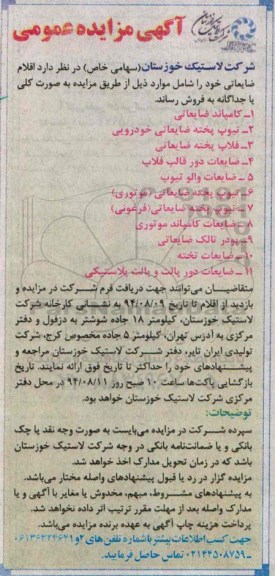 آگهی مزایده عمومی
شرکت لاستیک خوزستان(سهامی خاص) در نظر دارد اقلام
ضایعاتی خود را شامل موارد ذیل از طریق مزایده به صورت کلی
یا جداگانه به فروش رساند.
۱ـ کامپاند ضایعاتی
۲ـ تیوپ پخته ضایعاتی خودرویی
۳ـ فلاپ پخته ضایعاتی
۴ـ ضایعات دور قالب فلاپ
۵ ـ ضایعات والو تیوپ
۶ـ تیوپ پخته ضایعاتی(موتوری)
۷ـ تیوپ پخته ضایعاتی(فرغونی)
۸ ـ ضایعات کامپاند موتوری
۹ـ پودر تالک ضایعاتی
۱۰ـ ضایعات تخته
۱۱ـ ضایعات دور پالت و پالت پلاستیکی
متقاضیان می‌توانند جهت دریافت فرم شرکت در مزایده و
بازدید از اقلام تا تاریخ ۹۴/۰۸/۰۹ به نشانی کارخانه شرکت
لاستیک خوزستان، کیلومتر ۱۸ جاده شوشتر به دزفول و دفتر
مرکزی به آدرس تهران، کیلومتر ۵ جاده مخصوص کرج، شرکت
تولیدی ایران تایر، دفتر شرکت لاستیک خوزستان مراجعه و
پیشنهادهای خود را حداکثر تا تاریخ فوق ارائه نمایند. تاریخ
بازگشایی پاکت‌ها ساعت ۱۰ صبح روز ۹۴/۰۸/۱۱ در محل دفتر
مرکزی شرکت لاستیک خوزستان خواهد بود.
توضیحات:
سپرده شرکت در مزایده می‌بایست به صورت وجه نقد یا چک
بانکی و یا ضمانت‌نامه بانکی در وجه شرکت لاستیک خوزستان
باشد که در زمان تحویل مدارک اخذ خواهد شد.
مزایده گزار در رد یا قبول پیشنهادهای واصله مختار می‌باشد.
به پیشنهادهای مشروط، مبهم، مخدوش یا مغایر با آگهی و یا
مدارک واصله بعد از مهلت مقرر ترتیب اثر داده نخواهد شد.
پرداخت هزینه چاپ آگهی به عهده برنده مزایده می‌باشد.
جهت کسب اطلاعات بیشتر با شماره تلفن‌های
۰۲۱۴۴۵۰۸۷۵۹ـ تماس حاصل فرمایید.